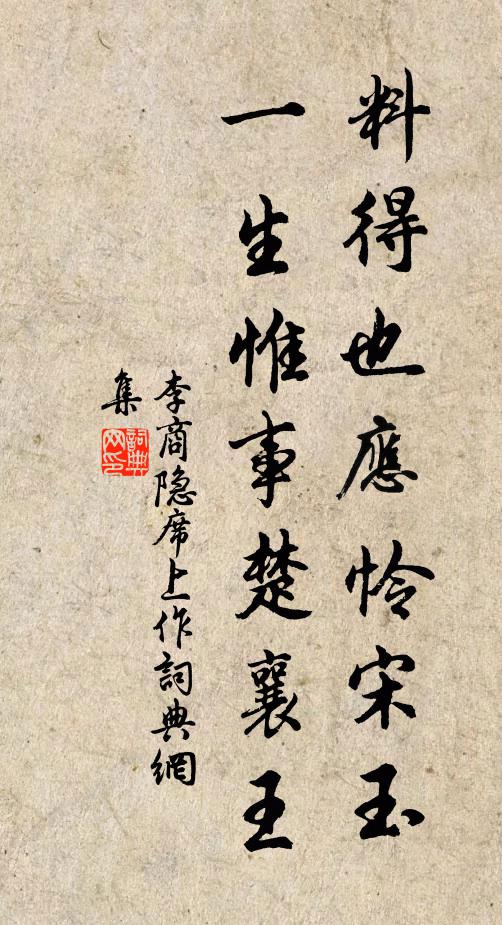 料得也應怜宋玉
一生惟事楚襄王
李商隐席上作詞典網
集
詞典
网印